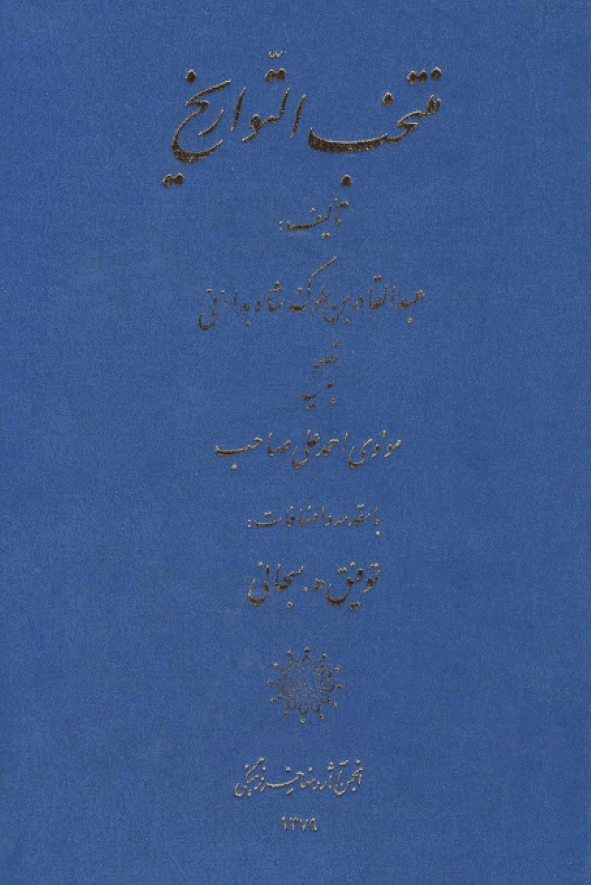 منتخب التّواریخ
تألیف:
عبدالقادر بن ملوک شاه بدائونی
به تصحیح
مولوی احمد علی صاحب
با مقدمه و اضافات:
توفیق ه. سبحانی
انجمن آثار و مفاخر فرهنگی
۱۳۷۹